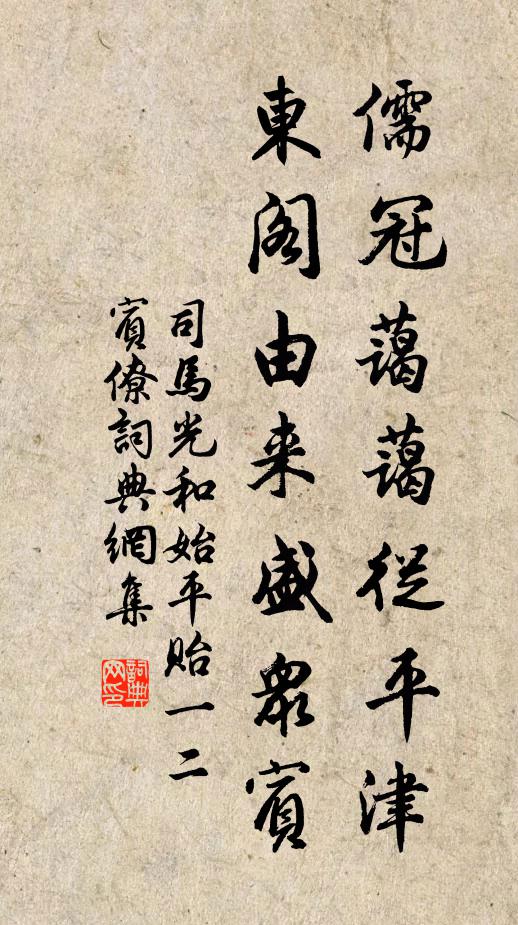 儒冠藹藹從平津
東閣由来盛眾賓
司馬光和始平貽一二
賓僚詞典網集
詞典网印